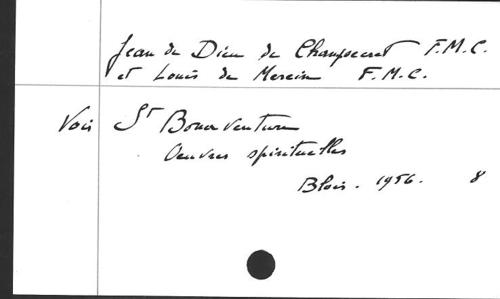 Jean de Dieu de Champsecret F.M.C.
et Louis de Mercin F.M.C.
Voir St Bonaventure
Oeuvres spirituelles
Blois. 1956. 8